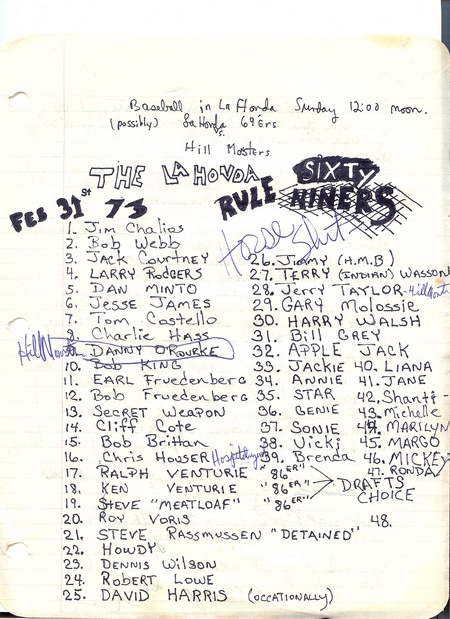 Baseball in La Honda Sunday 12:00 noon.
(possibly) La Honda 69ers
vs.
Hill Mosters
THE LA HONDA SIXTY NINERS RULE
Horse Shit
FEB 31st 73
1. Jim Chalios
2. Bob Webb
3. Jack Courtney
4. LARRY RODGERS
5. DAN MINTO
6. Jesse JAMES
7. Tom Costello
8. Charlie Hass
9. DANNY O'ROURKE
10. Bob KING
11. EARL Fruedenberg
12. Bob Fruedenberg
13. SECRET WEAPON
14. Cliff Cote
15. Bob Brittan
16. Chris Houser
17. RALPH VENTURIE "86ER"
18. KEN VENTURIE "86ER"
19. STEVE "MEATLOAF" "86ER"
20. ROY VORIS
21. STEVE RASSMUSSEN "DETAINED"
22. HOWDY
23. DENNIS WILSON
24. ROBERT LOWE
25. DAVID HARRIS (OCCATIONALLY)
26. Jimmy (H.M.B)
27. TERRY (INDIAN) WASSON
28. Jerry TAYLOR
29. GARY Molossie
30. HARRY WALSH
31. Bill GREY
32. APPLE JACK
33. JACKIE
34. ANNIE
35. STAR
36. GENIE
37. SONIE
38. Vicki
39. Brenda
40. LIANA
41. JANE
42. Shanti -
43. Michelle
44. MARILYN
45. MARGO
46. MICKEY
47. RONDA
DRAFTS
CHOICE
48.